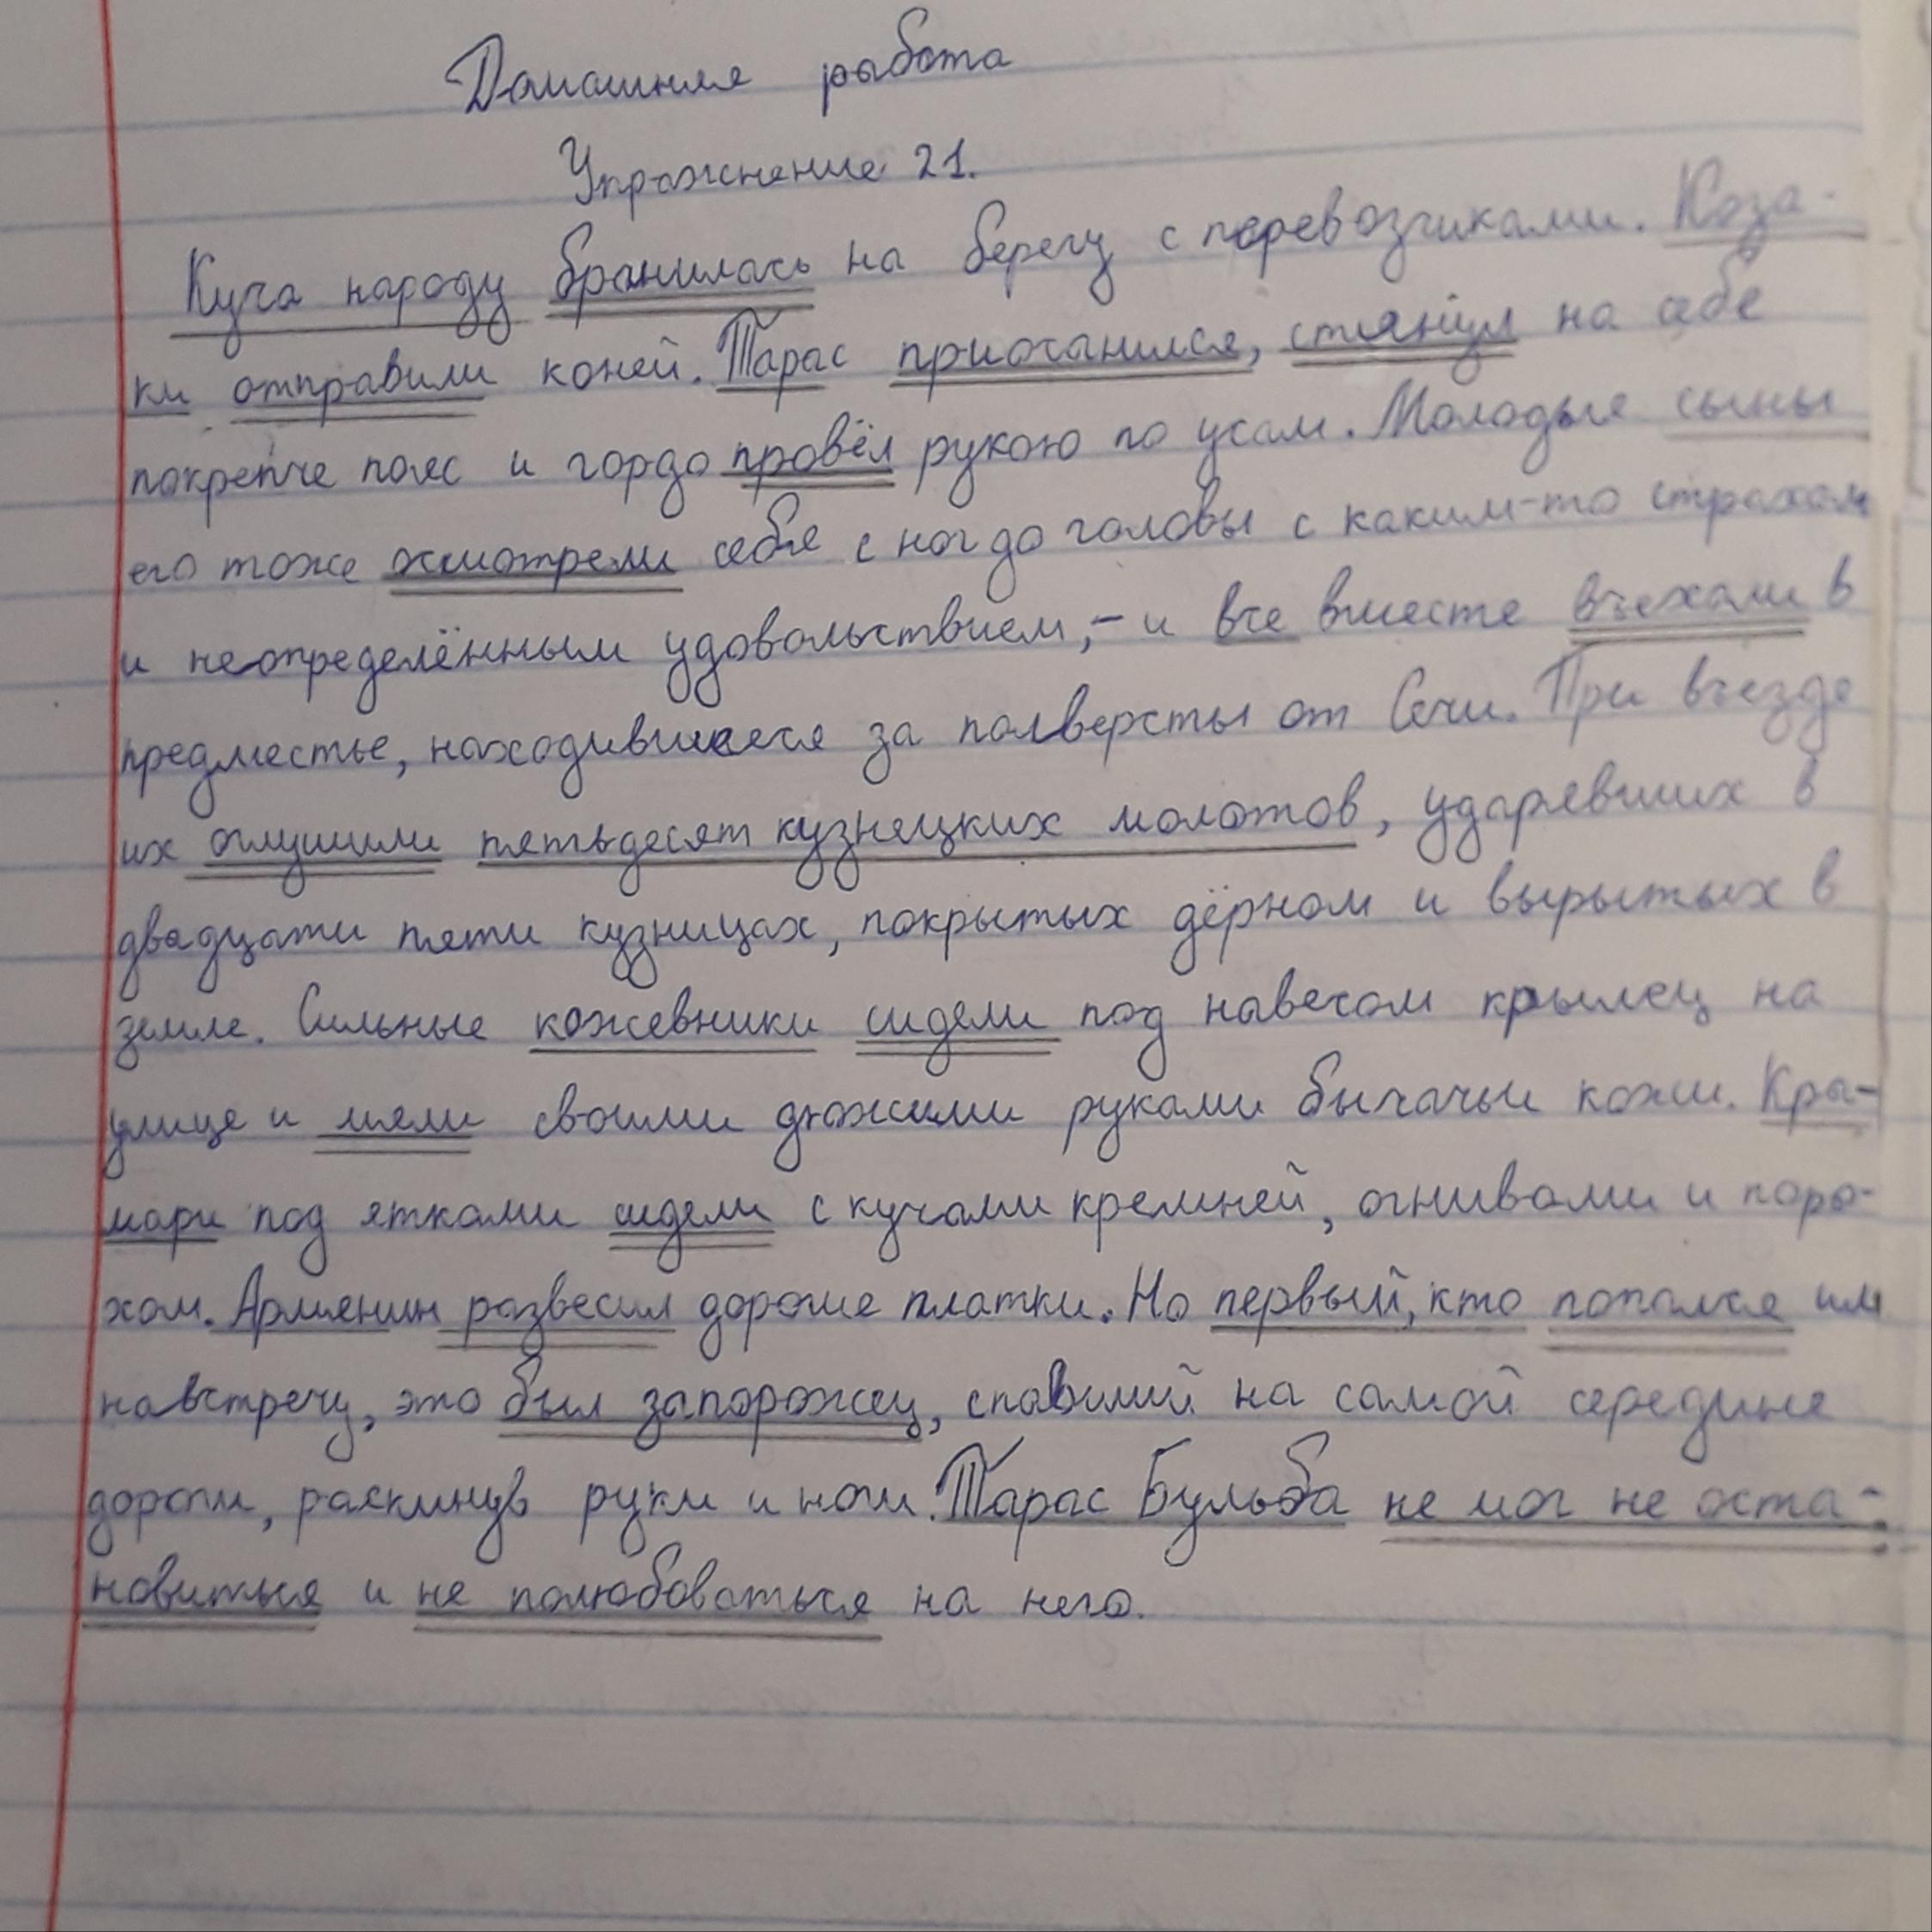 Домашняя работа
Упражнение 21.
Куча народу бранилась на берегу с перевозчиками. Коза-
ки отправили коней. Тарас приосанился, стянул на себе
покрепче пояс и гордо провёл рукою по усам. Молодые сыны
его тоже осмотрели себя с ног до головы с каким-то страхом
и неопределённым удовольствием,- и все вместе въехали в
предместье, находившееся за полверсты от Сечи. При въезде
их оглушили пятьдесят кузнецких молотов, ударявших в
двадцати пяти кузницах, покрытых дёрном и вырытых в
земле. Сильные кожевники сидели под навесом крылец на
улице и мяли своими дюжими руками бычачьи кожи. Кра-
мари под ятками сидели с кучами кремней, огнивами и поро-
хом. Армянин развесил дорогие платки. Но первый, кто попался им
навстречу, это был запорожец, спавший на самой середине
дороги, раскинув руки и ноги. Тарас Бульба не мог не оста-
новиться и не полюбоваться на него.